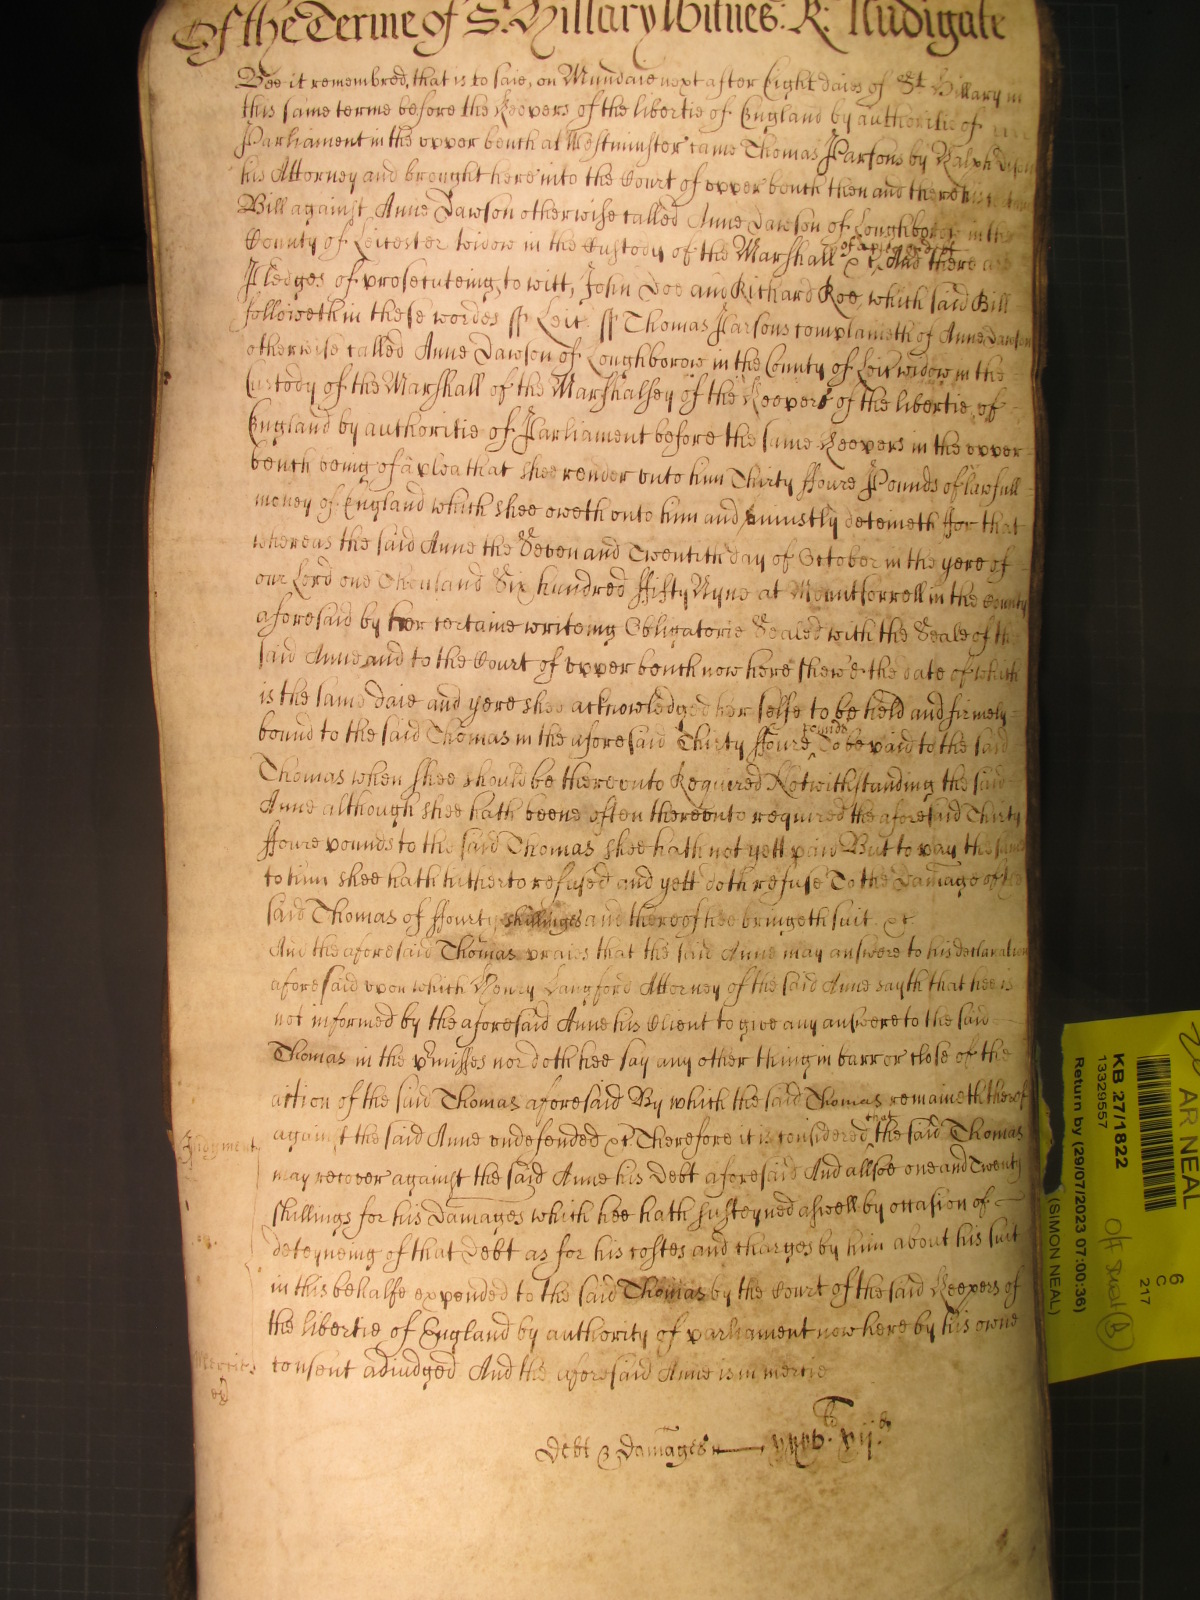 Of the Terme of St. Hillary Witnes: R: Nudigate
Bee it remembred, that is to saie, on Mundaie next after Eight daies of St Hillary in
this same terme before the Keepers of the libertie of England by authoritie of
Parliament in the upper bench at Westminster came Thomas Parsons by Ralph
his Attorney and brought here into the Court of upper bench then and there his
Bill against Anne Dawson otherwise called Anne Dawson of Loughborow in the
County of Leicester widow in the Custody of the Marshall &c of a plea of debt And there are
Pledges of prosecuteing, to witt, John Doe and Richard Roe, which said Bill
followeth in these wordes ss Leic: ss Thomas Parsons complaineth of Anne Dawson
otherwise called Anne Dawson of Loughborow in the County of Leic widow in the
Custody of the Marshall of the Marshalsey of the Keepers of the libertie of
England by authoritie of Parliament before the same Keepers in the upper
bench being of a plea that shee render unto him Thirty ffoure Pounds of lawfull
money of England which shee oweth unto him and uniustly deteineth ffor that
whereas the said Anne the Seven and Twentith day of October in the yere of
our Lord one Thousand Six hundred ffifty Nyne at Mountsorrell in the County
aforesaid by her certaine writeing Obligatorie Sealed with the Seale of the
said Anne and to the Court of upper bench now here shewed the date of which
is the same daie and yere shee acknowledged her selfe to be held and firmely
bound to the said Thomas in the aforesaid Thirty ffoure pounds To be paid to the said
Thomas when shee should be thereunto Required Notwithstanding the said
Anne although shee hath beene often thereunto required the aforesaid Thirty
ffoure pounds to the said Thomas shee hath not yett paid But to pay the same
to him shee hath hitherto refused and yett doth refuse To the Damage of the
said Thomas of ffourty shillinges and thereof hee bringeth suit &c
And the aforesaid Thomas praies that the said Anne may answere to his declaration
aforesaid upon which Henry Langford Attorney of the said Anne sayth that hee is
not informed by the aforesaid Anne his Client to give any answere to the said
Thomas in the p'misses nor doth hee say any other thing in barr or close of the
action of the said Thomas aforesaid By which the said Thomas remaineth therof
Judgment against the said Anne undefended &c Therefore it is considered that the said Thomas
may recover against the said Anne his Debt aforesaid And allsoe one and Twenty
shillings for his Damages which hee hath susteyned aswell by occasion of
deteyneing of that Debt as for his costes and charges by him about his suit
in this behalfe expended to the said Thomas by the Court of the said Keepers of
the libertie of England by authority of parliament now here by his owne
Mercie consent adiudged And the aforesaid Anne is in mercie
Debt & Damages
AR NEAL
KB 27/1822
13329557
Return by (29/07/2023 07:00:36)
(SIMON NEAL)
6
C
217